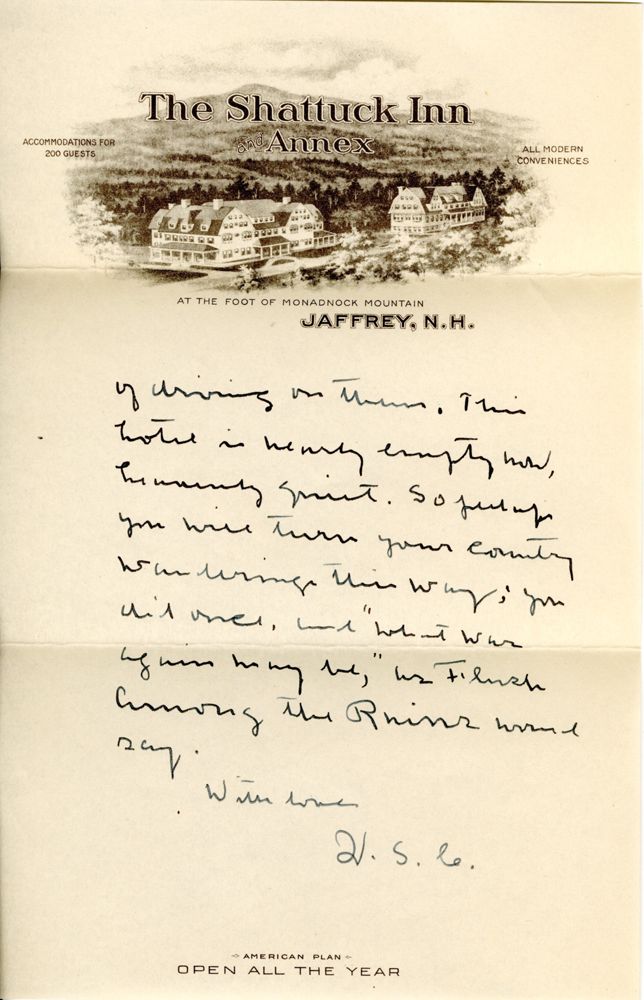 The Shattuck Inn
and Annex
ACCOMMODATIONS FOR
200 GUESTS
ALL MODERN
CONVENIENCES
AT THE FOOT OF MONADNOCK MOUNTAIN
JAFFREY, N.H.
of driving on them. This
hotel is nearly empty now,
heavenly quiet. So perhaps
you will turn your country
wanderings this way; you
did once, and "what was
again may be," as Flush
Among the Ruins would
say.
With love
W. S. C.
AMERICAN PLAN
OPEN ALL THE YEAR